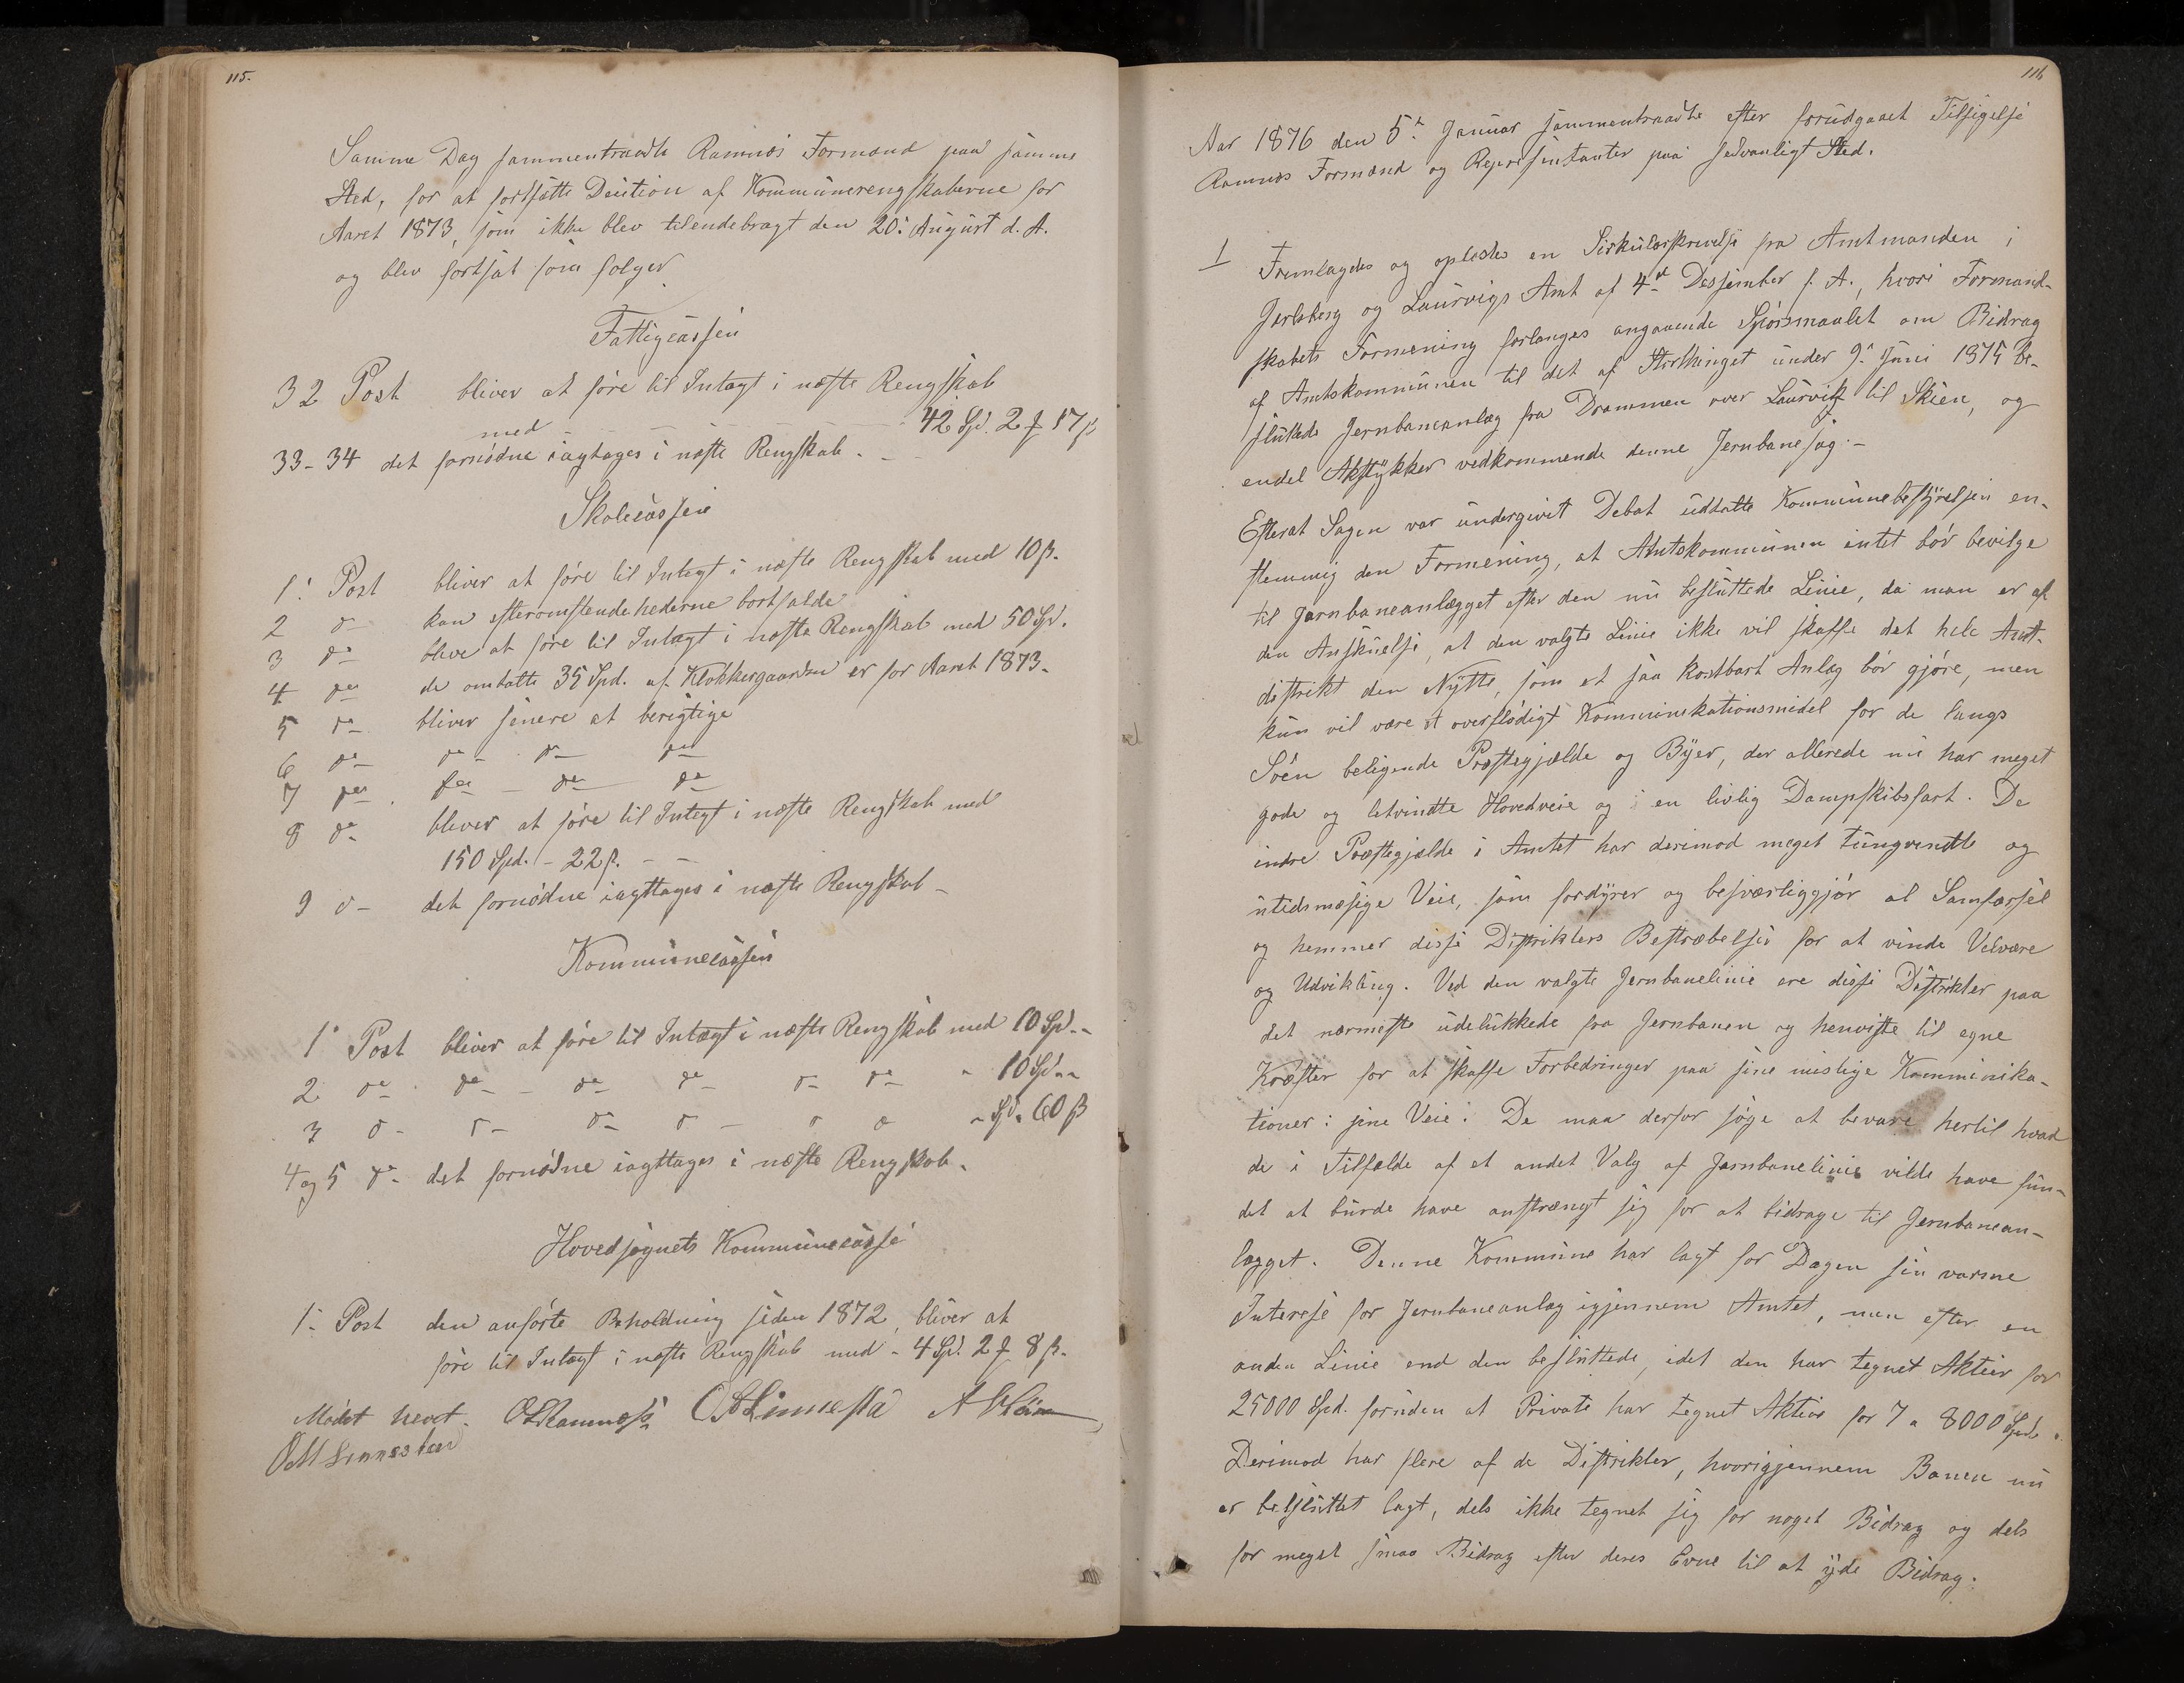 115.
Samme Dag sammentraadte Ramnæs Formænd paa samme
Sted, for at fortsætte Desition af Kommunerengskaberne for
Aaret 1873, som ikke blev tilendebragt den 20: August d. A.
og blev fortsat som følger
Fattigcassen
32 Post bliver at føre til Intægt i næste Rengskab
med - - - - - 42 Sp. 2 ƒ 17 β
33-34 det fornødne iagtages i næste Rengskab. -
Skolecassen
1: Post bliver at føre til Intægt i næste Rengskab med 10 β.
2 do kan efteromstendehederne bortfalde
3 do blive at føre til Intægt i næste Rengskab med 50 Sp.
4 do de omtatte 35 Spd. af Klokkergaarden er for Aaret 1873.
5 do bliver senere at berigtige
6 do do do do
7 do do do do
8 do bliver at føre til Intægt i næste Rengskab med
150 Spd. - 22 β. - -
9 do det fornødne iagttages i næste Rengskab -
Kommunecassen
1 Post bliver at føre til Intægt i næste Rengskab med 10 Sp. -
2 do do do do do do - 10 Sp. - -
3 do do do do do do - Sp. 60 β
4 og 5 do det fornødne iagttages i næste Rengskab.
Hovedsognets Kommunecasse
1- Post den anførte Beholdning siden 1872, bliver at
føre til Intægt i næste Rengskab med - 4 Sp. 2 ƒ 8 β.
Mødet hevet. O Ramnæs
116
Aar 1876 den 5te Januar sammentraadte efter forudgaaet Tilsigelse
Ramnæs Formænd og Representanter paa sedvanligt Sted.
1 Fremlagdes og oplæstes en Sirkulærskrivelse fra Amtmanden i
Jarlsberg og Laurvigs Amt af 4de Dessember f. A., hvori Formand-
skabets Formening forlanges angaaende Spørsmaalet om Bidrag
af Amtskommunen til det af Storthinget under 9de Juni 1875 be-
sluttede Jernbaneanlæg fra Drammen over Laurvik til Skien, og
endel Akstykker vedkommende denne Jernbanesag. -
Efterat Sagen var undergivet Debat uddatte Kommunebestyrelsen en-
stemmig den Formening, at Amtskommunen intet bør bevilge
til Jernbaneanlægget efter den nu besluttede Linie, da man er af
den Anskuelse, at den valgte Linie ikke vil skaffe det hele Amt-
distrikt den Nytte, som et saa kostbart Anlæg bør gjøre, men
kun vil være et overflødigt Kommunikationsmidel for de langs
Søen beligende Præstegjælde og Byer, der allerede nu har meget
gode og letvindte Hovedveie og i en livlig Dampskibsfart. De
indre Præstegjælde i Amtet har derimod meget tungvindte og
utidsmæsige Veie, som fordyrer og besværliggjør al Samfærsel
og hemmer disse Distrikters Bestræbelser for at vinde Velvære
og Udvikling. Ved den valgte Jernbanelinie ere disse Distrikter paa
det nærmeste udelukkede fra Jernbanen og henviste til egne
Kræfter for at skaffe Forbedringer paa sine mislige Kommunika-
tioner: sine Veie: De maa derfor søge at bevare hertil hvad
de i Tilfælde af et andet Valg af Jernbanelinie vilde have fun-
det at burde have anstrængt sig for at bidrage til Jernbanean-
lægget. Denne Kommune har lagt for Dagen sin varme
Interesse for Jernbaneanlæg igjennem Amtet, men efter en
anden Linie end den besluttede, idet den har tegnet Aktier for
25000 Spd. foruden at Private har tegnet Aktier for 7 a 8000 Spd.
Derimod har flere af de Distrikter, hvorigjennem Banen nu
er besluttet lagt, dels ikke tegnet sig for noget Bidrag og dels
for meget smaa Bidrag efter deres Evne til at yde Bidrag.